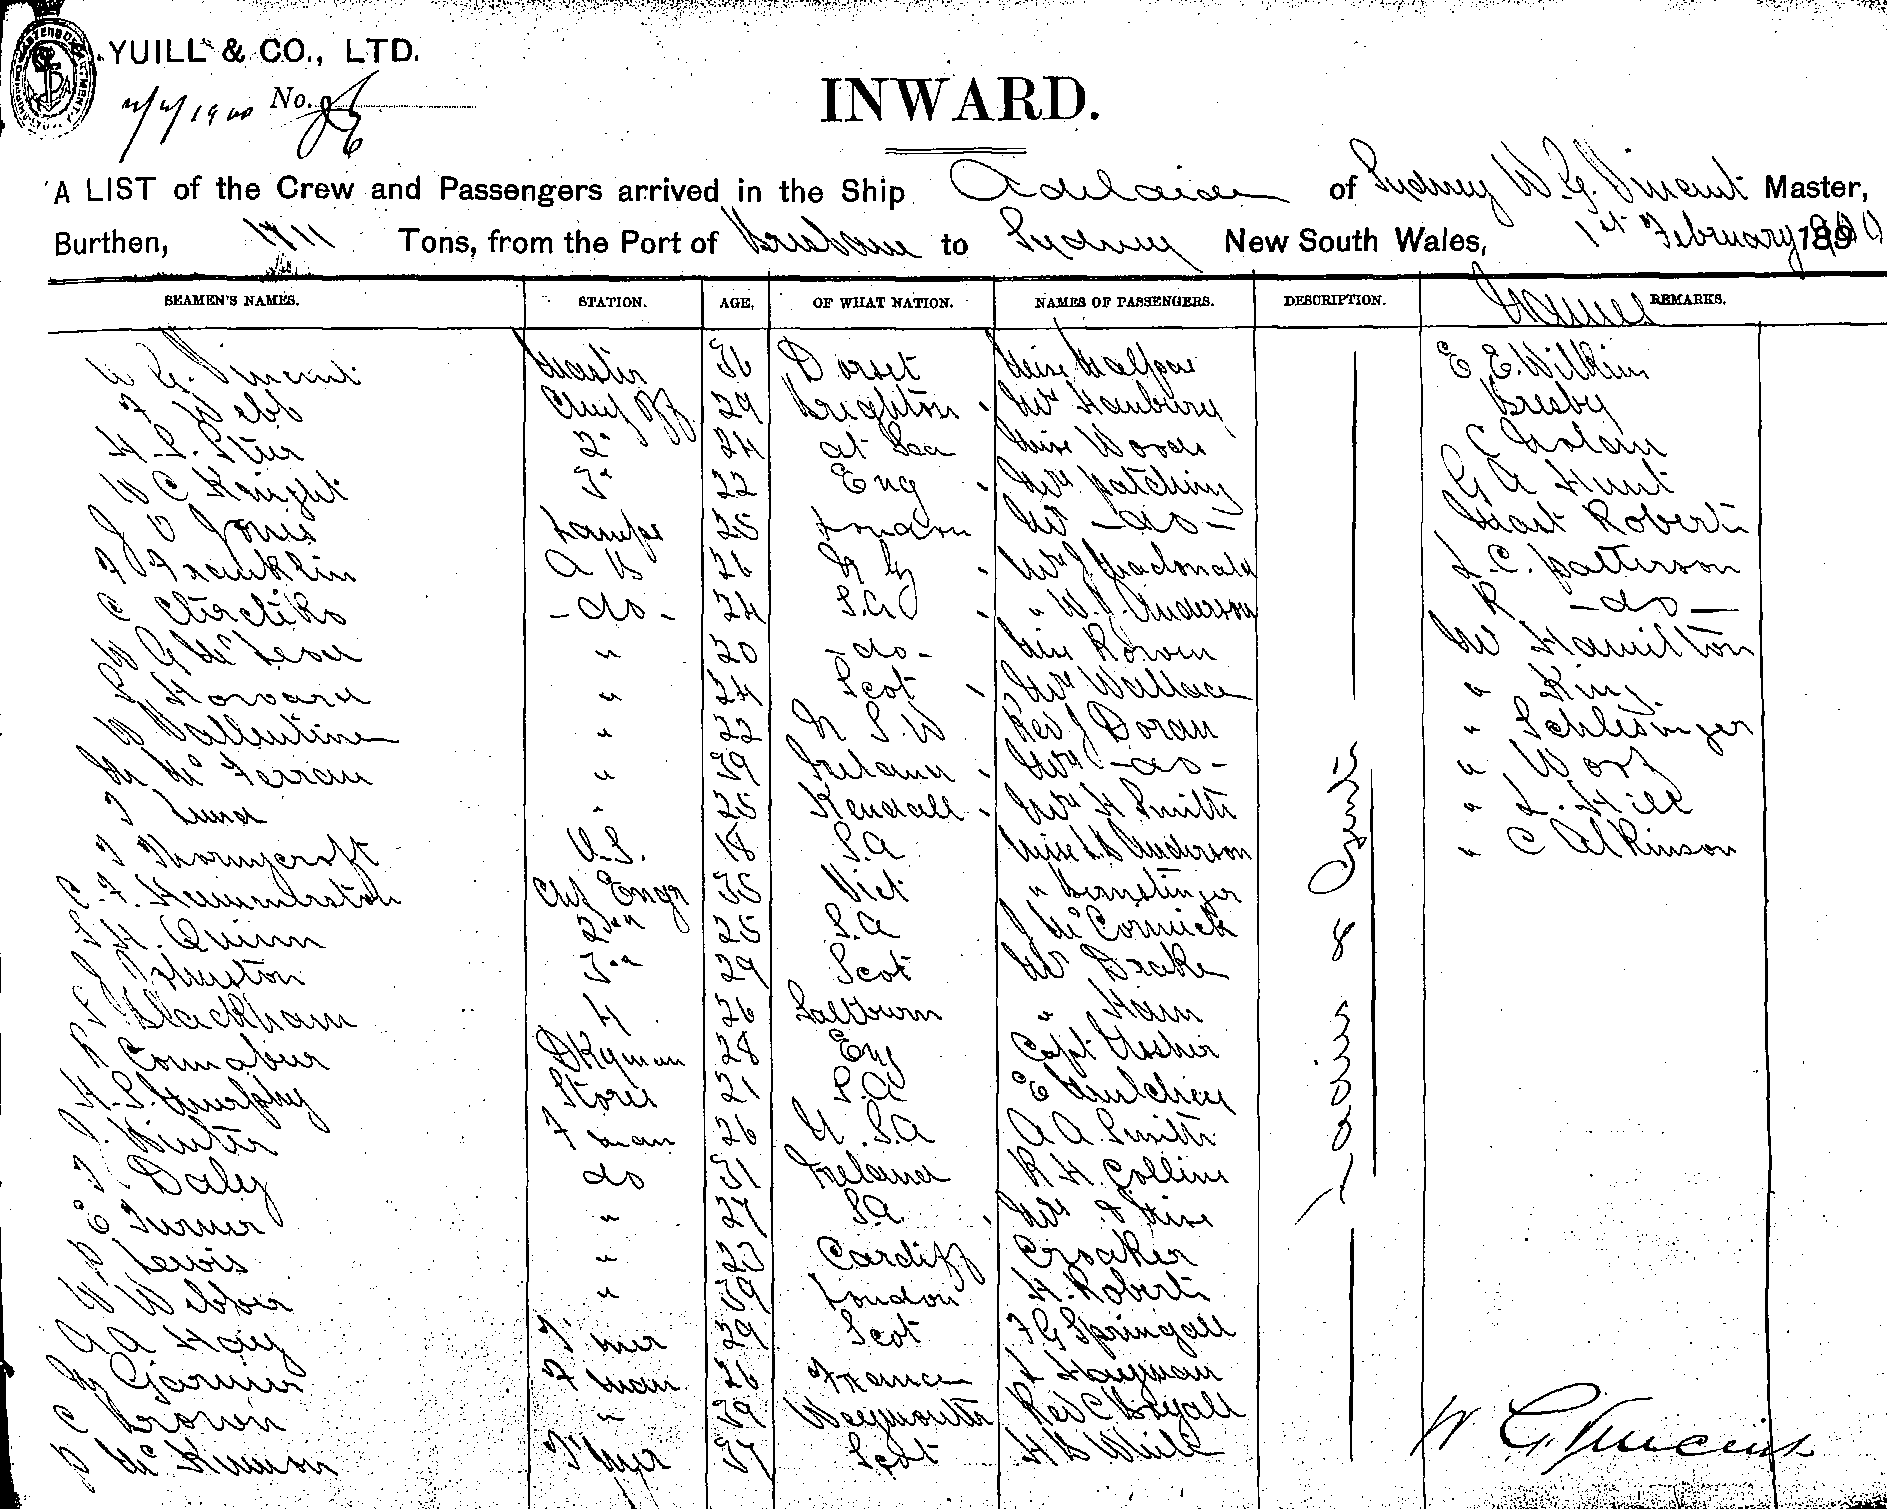 YUILL & CO., LTD.
2/2/1900 No.
INWARD.
A LIST of the Crew and Passengers arrived in the Ship Adelaide of Sydney W. G. Vincent Master,
Burthen, 1711 Tons, from the Port of Brisbane to Sydney New South Wales, 1st February 1900
SEAMEN'S NAMES. STATION. AGE, OF WHAT NATION. NAMES OF PASSENGERS. DESCRIPTION. Names REMARKS.
W G. Vincent Master 36 Dorset Miss Halfpac E. E. Wilkin
F Webb Chief Off 29 Brighton Mrs Hanbury Bresby
H. S. 2d 24 at Sea Miss Woods C
W C Knight 3d 22 Eng Mrs Patching G A Hunt
J O Jones Lamps 25 London Mr - do - Mast Roberts
F Franklin A B 26 N Z Mrs J Macdonald L. C. Patterson
C - do - 24 S.A " W. J. Anderson R - do -
W G McLeod " 20 - do - Miss Rowen Mr Hamilton
S Howard " 24 Scot Mrs Wallace " King
W Vallentine " 22 N S. W Rev J Doran " Schlesinger
M McFerran " 39 Ireland Mrs - do - "
T Lund " 25 Kendall Mrs H Smith " L. Hill
T Thornycroft O.S. 18 S.A Miss L B Anderson " C Atkinson
C. F. Hammerston Chf Engr 35 Vict "
S H. Quinn 2nd 25 S.A J McCormick
J Johnston 3rd 29 Scot Mr Drake
S Blackham 4 26 Saltburn " Ham
R Connabur Dkyman 28 Eng Capt Ussher
H. S. Murphy Stores 21 S.A E Hutchin
J. Winter F man 26 U. S A A A. Smith
T Daley do 31 Ireland R. H. Collins
E Turner " 27 S.A. Mrs & Miss
P Lewis " 23 Cardiff Croaker
W Webber " 39 London H. Roberts
A A Hay T'mer 29 Scot F G Springall
M Garnier F man 26 France L Hayman
C Brown " 39 Weymouth Rev C Bryall
P McKinnon 37 Scot H B White
Saloon & 
W G. Vincent